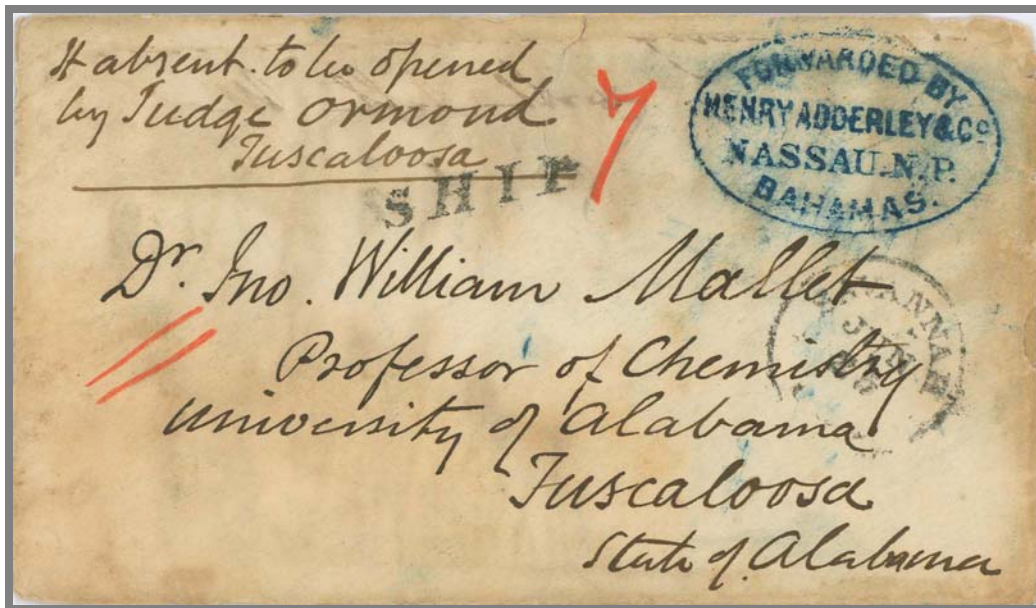 If absent. to be opened
by Judge Ormond
Tuscaloosa
FORWARDED BY
HENRY ADDERLEY & Co
NASSAU. N. P.
BAHAMAS.
SHIP
7
Dr. Jno. William Mallet
Professor of Chemistry
University of Alabama
Tuscaloosa
State of Alabama